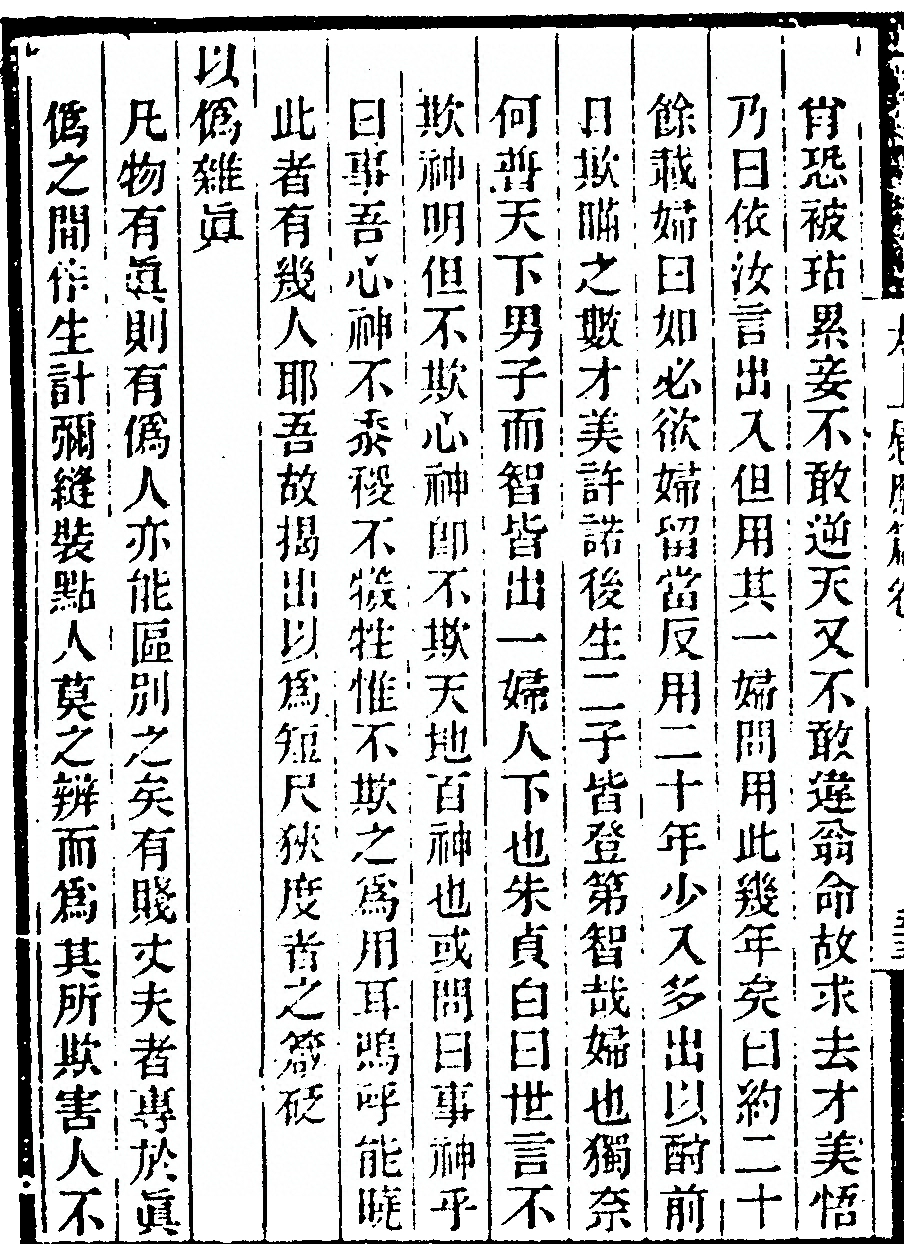 肖恐被玷累妾不敢逆天又不敢違翁命故求去才美悟
乃曰依汝言出入但用其一婦問用此幾年矣曰約二十
餘載婦曰如必欲婦留當反用二十年少入多出以酧前
日欺瞞之數才美許諾後生二子皆登第智哉婦也獨奈
何普天下男子而智皆出一婦人下也朱貞白曰世言不
欺神明但不欺心神即不欺天地百神也或問曰事神乎
曰事吾心神不黍稷不犧牲惟不欺之爲用耳嗚呼能曉
此者有幾人耶吾故揭出以爲短尺狹度者之箴砭
以僞雜眞
凡物有眞則有僞人亦能區別之矣有賤丈夫者專於眞
僞之間作生計彌縫裝點人莫之辨而爲其所欺害人不